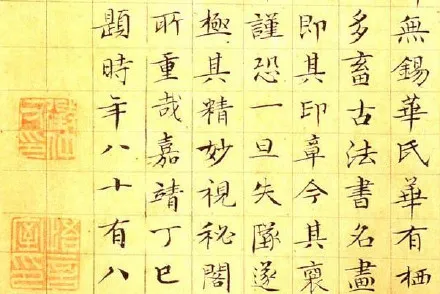 無錫華氏華有栖
多畜古法書名畫
即其印章今其裔
謹恐一旦失墜遂
極其精妙視秘閣
所重哉嘉靖丁巳
題時年八十有八